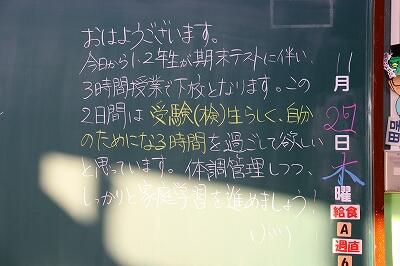 おはようございます。
今日から1・2年生が期末テストに伴い、
3時間授業で下校となります。この
2日間は受験(検)生らしく、自分
のためになる3時間を過ごして欲しい
と思っています。体調管理しつつ、
しっかりと家庭学習を進めましょう!
11
月
27
日
木
曜
給食
A
週直
6